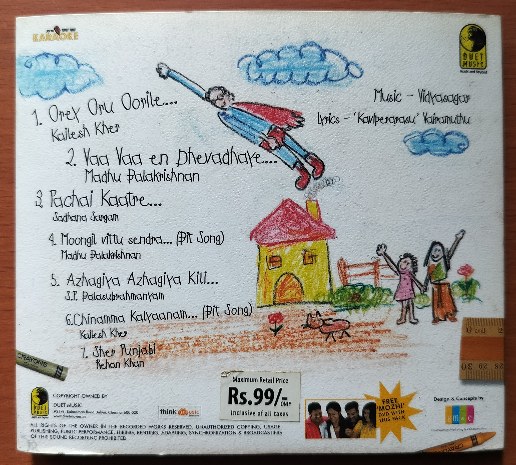 KARAOKE
DUET MUSIC
Music - Vidyasagar
Lyrics - 'Kaviperarasu' Vairamuthu
1. Orey Oru Oorile....
Kailesh Kher
2. Vaa Vaa en Dhevadhaye....
Madhu Balakrishnan
3. Pachai Kaatre...
Sadhana Sargam
4. Moongil vittu sendra... (Bit Song)
Madhu Balakrishnan
5. Azhagiya Azhagiya Kili...
S.P. Balasubrahmanyam
6. Chinamma Kalyaanam... (Bit Song)
Kailesh Kher
7. Sher Punjabi
Rehan Khan
CRAYONS
COPYRIGHT OWNED BY
DUET MUSIC
think music
Maximum Retail Price
Rs.99/-
Inclusive of all taxes
FREE
'MOZHI'
DVD WITH
THIS PACK
Design & Concept by
ALL RIGHTS OF THE OWNER IN THE RECORDED WORKS RESERVED. UNAUTHORIZED COPYING, USAGE
PUBLISHING, PUBLIC PERFORMANCE, HIRING, RENTING, ADAPTING, SYNCHRONIZATION & BROADCASTING
OF THIS SOUND RECORDING PROHIBITED.